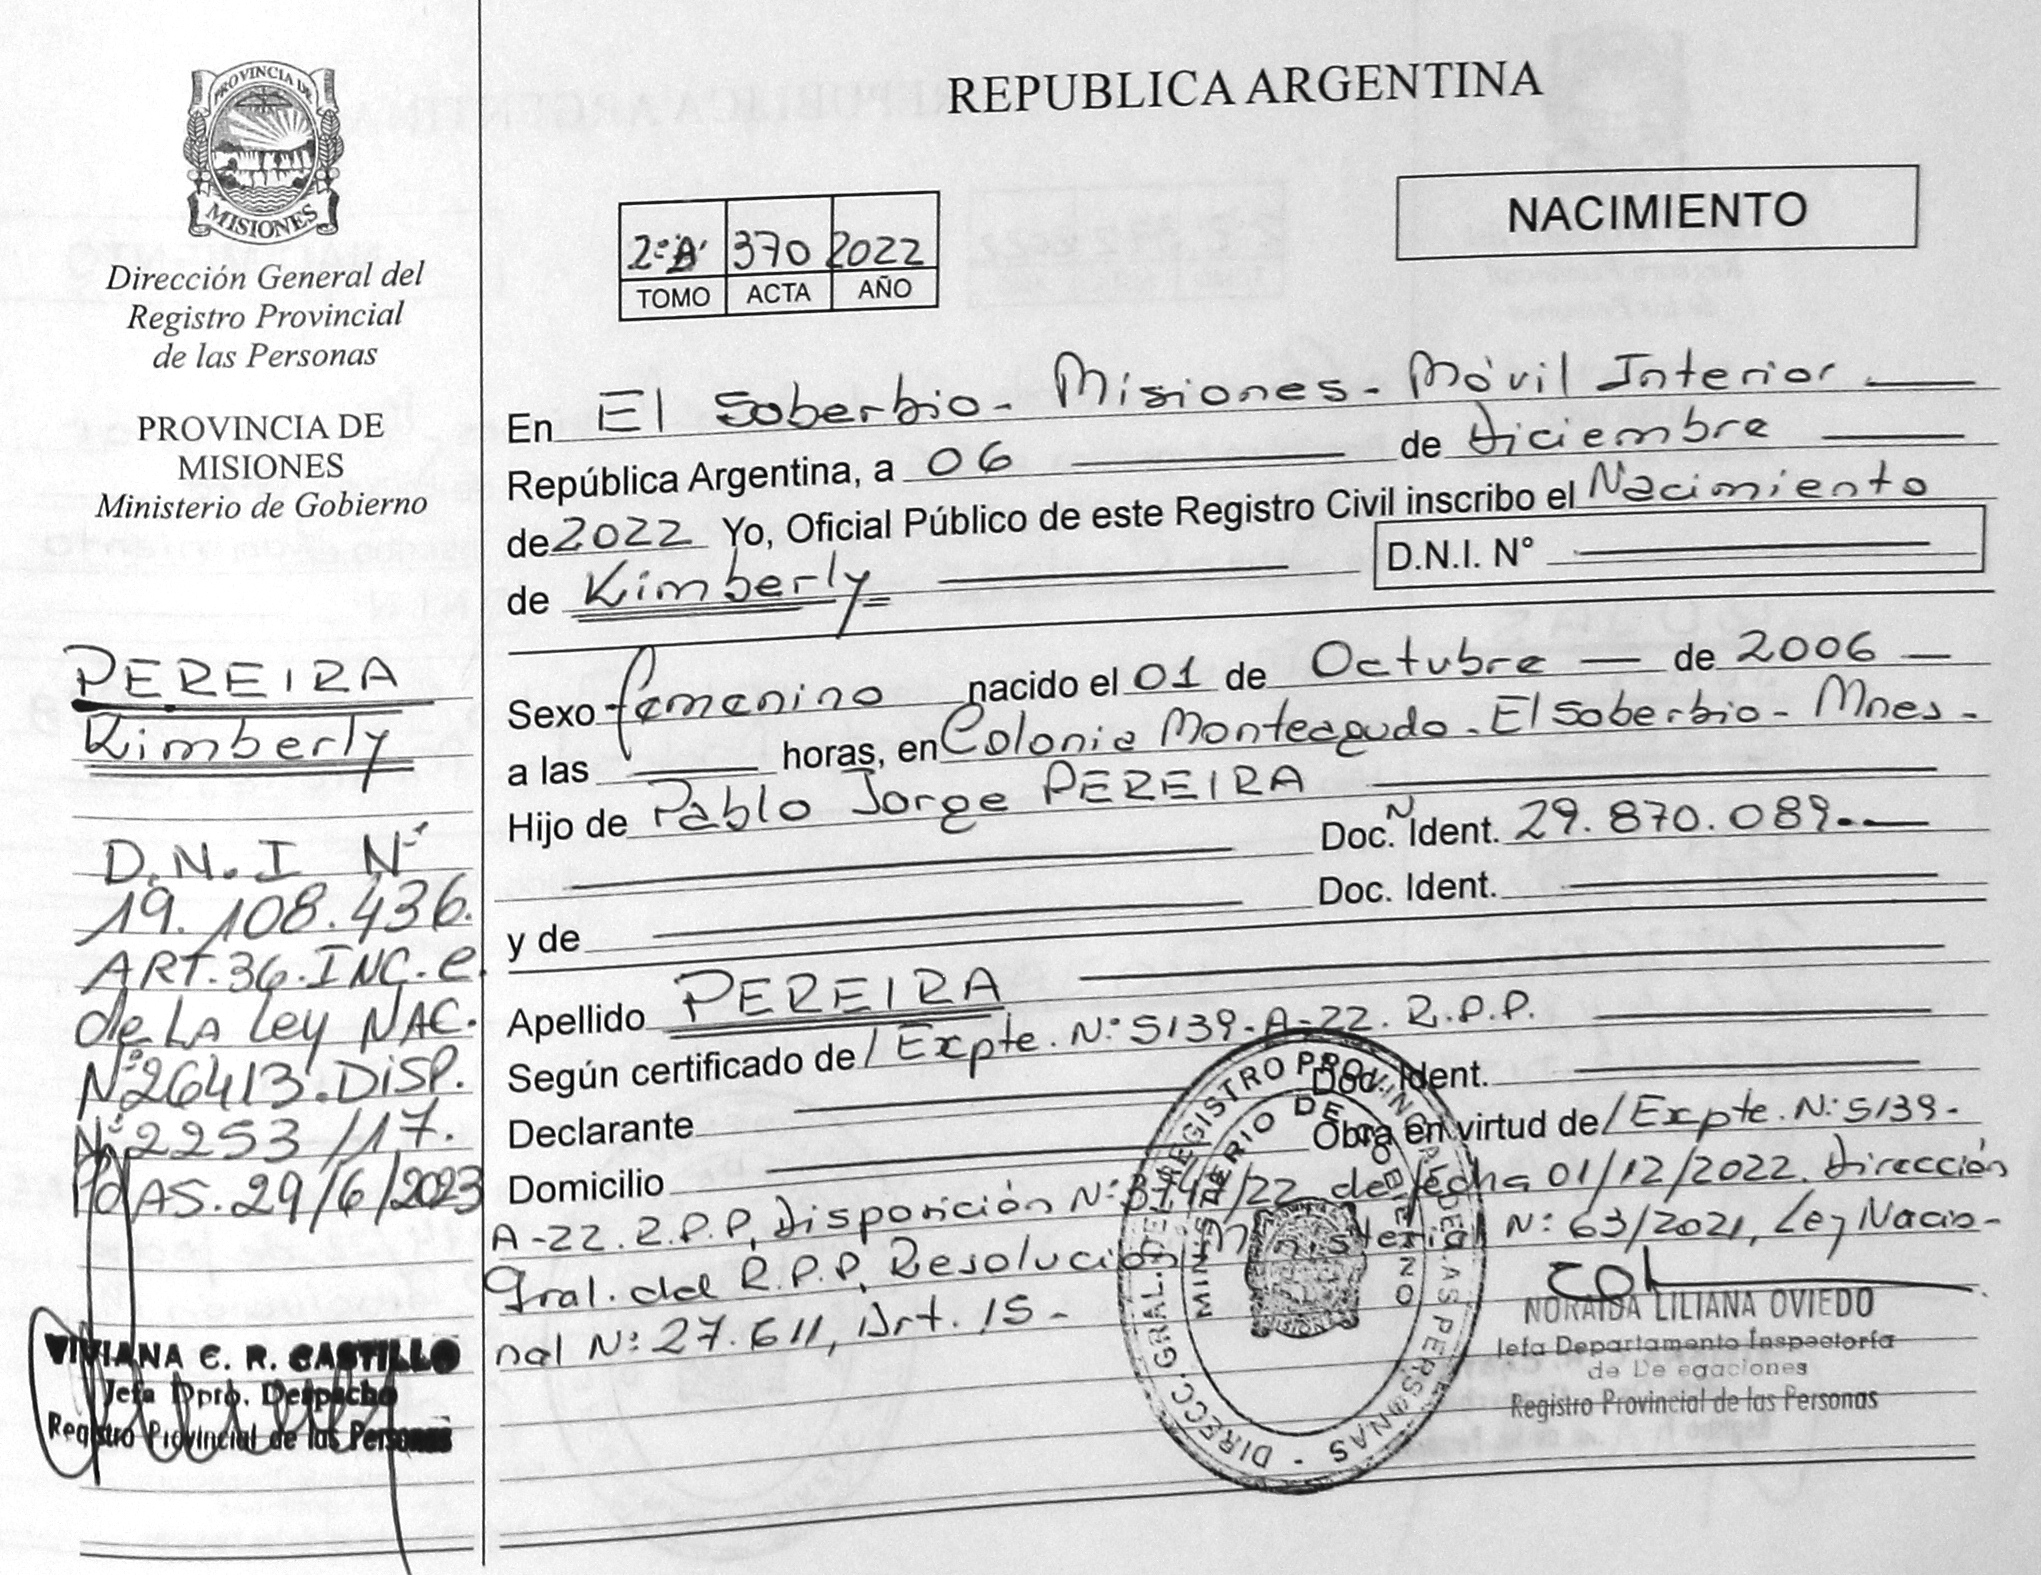 PROVINCIA DE
MISIONES
Dirección General del
Registro Provincial
de las Personas
PROVINCIA DE
MISIONES
Ministerio de Gobierno
PEREIRA
Kimberly
D.N.I Nº
19.108.436.
ART.36.INC.e.
de LA Ley NAC.
Nº26413.DiSP.
Nº2253/17.
PdAS.29/6/2023
VIVIANA C. R. CASTILLO
Jefa Dpto. Despacho
Registro Provincial de las Personas
REPUBLICA ARGENTINA
NACIMIENTO
2º"A" 370 2022
TOMO ACTA AÑO
En El Soberbio - Misiones - Móvil Interior
República Argentina, a 06 de Diciembre
de 2022 Yo, Oficial Público de este Registro Civil inscribo el Nacimiento
de Kimberly D.N.I. N°
Sexo femenino nacido el 01 de Octubre de 2006
a las horas, en Colonia Monteagudo - El Soberbio - Mnes.
Hijo de Pablo Jorge PEREIRA
Doc. N Ident. 29.870.089
Doc. Ident.
y de
Apellido PEREIRA
Según certificado de / Expte. Nº 5139-A-22. R.P.P.
Declarante Doc. Ident.
Domicilio Obra en virtud de / Expte. Nº 5139-
A-22. R.P.P. Disposición Nº /22 de fecha 01/12/2022. Dirección
Gral. del R.P.P. Resolución Ministerial Nº 63/2021, Ley Nacio-
nal Nº 27.611, Art. 15 -
DIRECC. GRAL. DEL REGISTRO PROVINCIAL DE LAS PERSONAS
MINISTERIO DE GOBIERNO
MISIONES
NORAIDA LILIANA OVIEDO
Jefa Departamento Inspectoría
de Delegaciones
Registro Provincial de las Personas